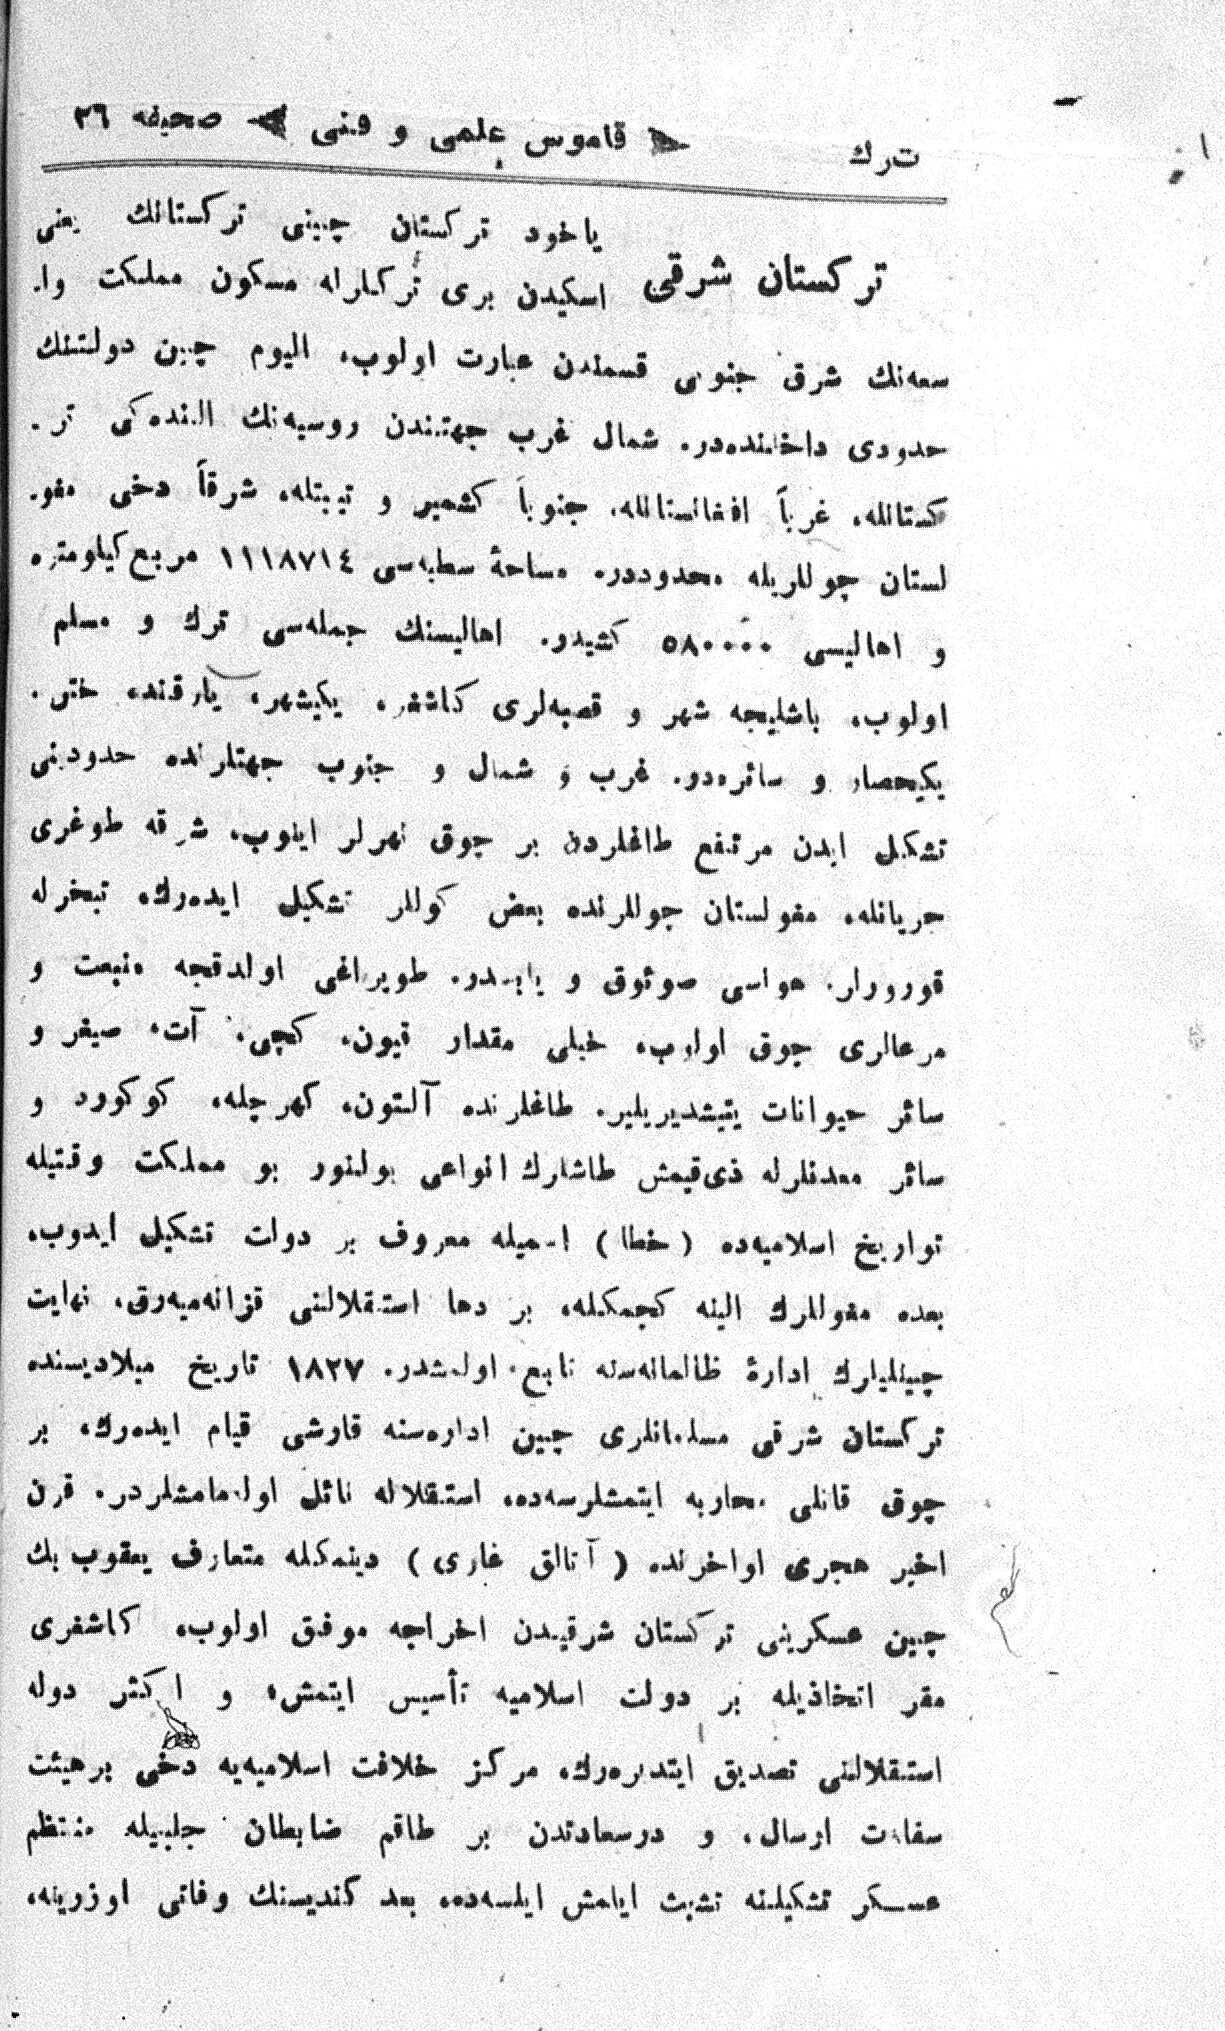 ترك ◄ قاموس علمی و فنی ► صحیفه ٢٦
یاخود ترکستان چینی ترکستانك یعنی
ترکستان شرقی
اسکیدن بری ترکلرله مسکون مملکت وا-
سعه‌نك شرق جنوبی قسمندن عبارت اولوب، الیوم چین دولتنك
حدودی داخلنده‌در. شمال غرب جهتندن روسیه‌نك النده‌کی تر-
کستانله، غرباً افغانستانله، جنوباً کشمیر و تیبتله، شرقاً دخی مغو-
لستان چوللریله محدوددر. مساحهٔ سطحیه‌سی ١١١٨٧١٤ مربع کیلومتره
و اهالیسی ٥٨٠٠٠٠ کشیدر. اهالیسنك جمله‌سی ترك و مسلم
اولوب، باشلیجه شهر و قصبه‌لری کاشغر، یکیشهر، یارقند، ختن،
یکیحصار و سائره‌در. غرب و شمال و جنوب جهتلرنده حدودینی
تشکیل ایدن مرتفع طاغلردن بر چوق نهرلر اینوب، شرقه طوغری
جریانله، مغولستان چوللرنده بعض کوللر تشکیل ایده‌رك، تبخرله
قورورلر. هواسی صوئوق و یابسدر. طوپراغی اولدقجه منبت و
مرعالری چوق اولوب، خیلی مقدار قیون، کچی، آت، صیغر و
سائر حیوانات یتیشدیریلیر. طاغلرنده آلتون، کهرچله، کوکورد و
سائر معدنلرله ذی‌قیمت طاشلرك انواعی بولنور بو مملکت وقتیله
تواریخ اسلامیه‌ده (خطا) اسمیله معروف بر دولت تشکیل ایدوب،
بعده مغوللرك الینه کچمکله، بر دها استقلالنی قزانه‌میه‌رق، نهایت
چینلیلرك ادارهٔ ظالمانه‌سنه تابع اولمشدر. ١٨٢٧ تاریخ میلادیسنده
ترکستان شرقی مسلمانلری چین اداره‌سنه قارشی قیام ایده‌رك، بر
چوق قانلی محاربه ایتمشلرسه‌ده، استقلاله نائل اوله‌مامشلردر. قرن
اخیر هجری اواخرنده (آتالق غازی) دینمکله متعارف یعقوب بك
چین عسکرینی ترکستان شرقیدن اخراجه موفق اولوب، کاشغری
مقر اتخاذیله بر دولت اسلامیه تأسیس ایتمش، و اکثر دوله
استقلالنی تصدیق ایتدیره‌رك، مرکز خلافت اسلامیه‌یه دخی بر هیئت
سفارت ارسال، و درسعادتدن بر طاقم ضابطان جلبیله منتظم
عسکر تشکیلنه تشبث ایلمش ایلسه‌ده، بعد کندیسنك وفاتی اوزرینه،